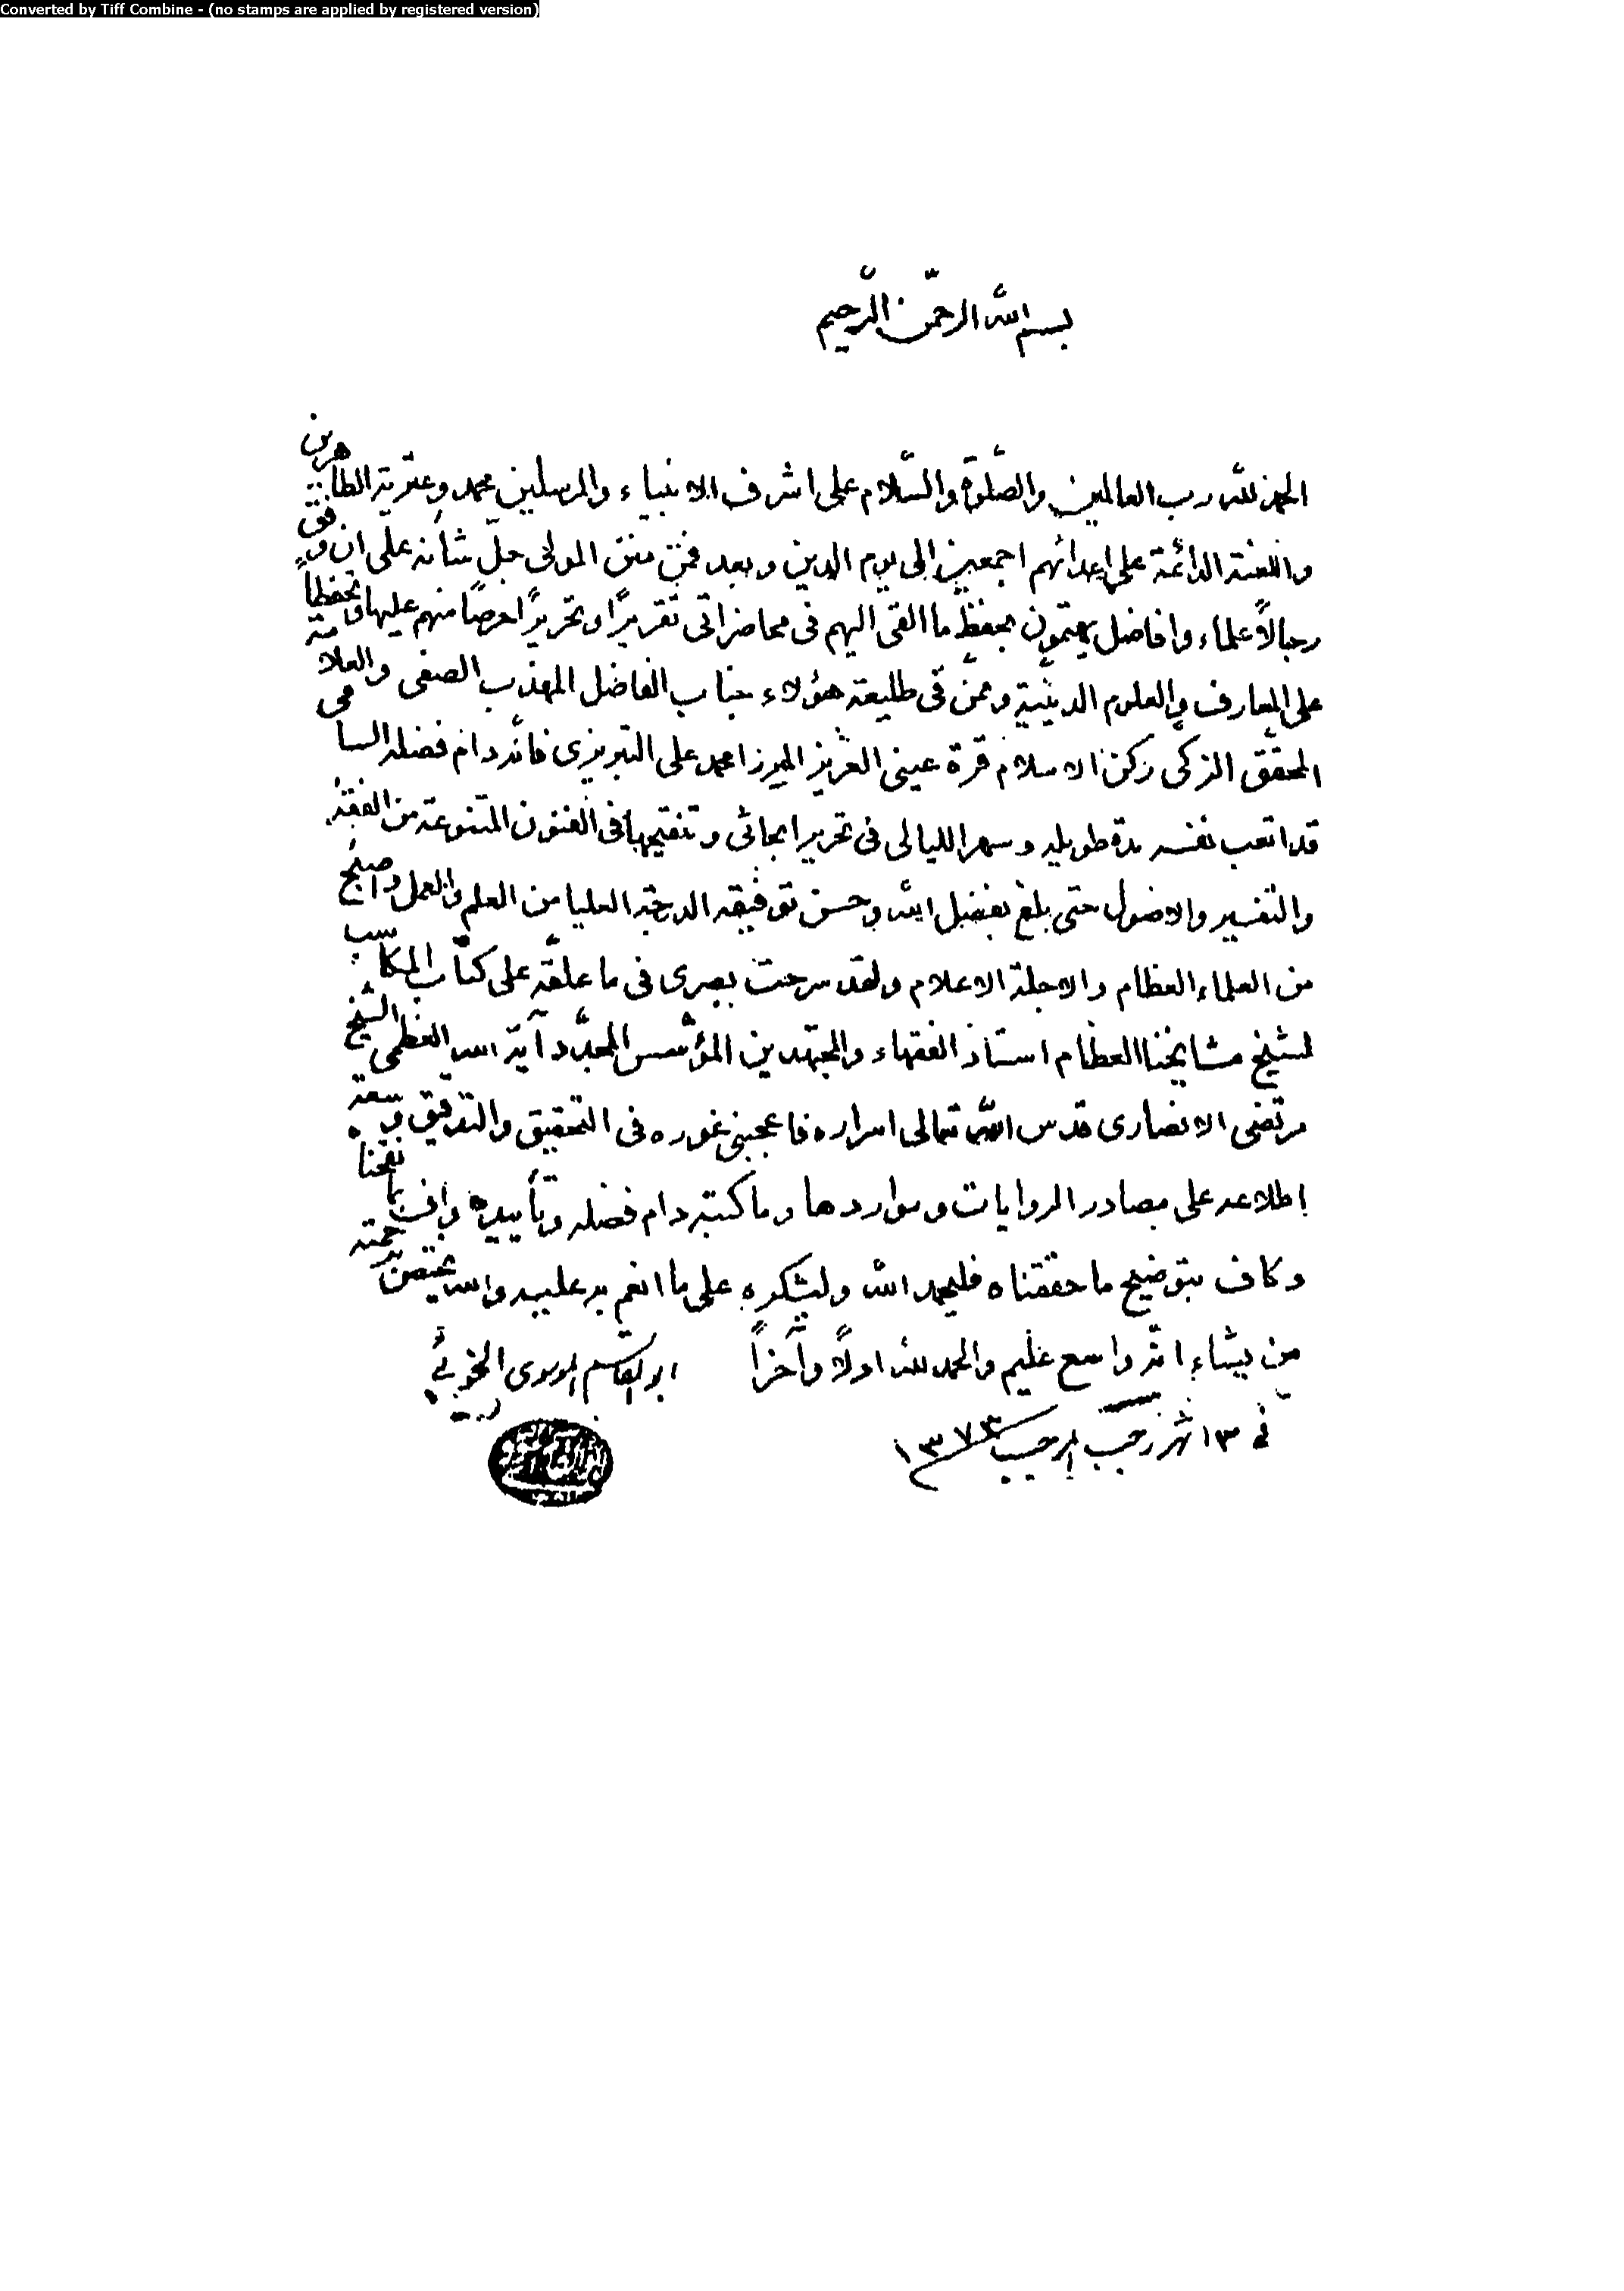 Converted by Tiff Combine - (no stamps are applied by registered version)
بسم الله الرحمن الرحيم
الحمد لله رب العالمين والصلوة والسلام على اشرف الانبياء والمرسلين محمد وعترته الطاهرين
واللعنة الدائمة على اعدائهم اجمعين الى يوم الدين وبعد فمن منن المولى جل شأنه على ان وفق
رجالاً علماء وافاضل يهتمون بحفظ ما القى اليهم فى محاضراتى تقريراً وتحريراً حرصاً منهم عليها وتحفظاً
على المعارف والعلوم الدينية وممن فى طليعة هؤلاء جناب الفاضل المهذب الصفى والعلامة
المحقق الزكى ركن الاسلام قرة عينى العزيز الميرزا محمد على التبريزى فانه دام فضله السامى
قد اتعب نفسه مدة طويلة وسهر الليالى فى تحرير ابحاثى وتنقيحها فى الفنون المتنوعة من الفقه
والتفسير والاصول حتى بلغ بفضل الله وحسن توفيقه الدرجة العليا من العلم والعمل واصبح
من العلماء العظام والاجلة الاعلام ولقد سرحت بصرى فى ما علقه على كتاب المكاسب
لشيخ مشايخنا العظام استاذ الفقهاء والمجتهدين المؤسس المجدد آية الله العظمى الشيخ
مرتضى الانصارى قدس الله تعالى اسراره فاعجبنى غوره فى التحقيق والتدقيق وسعة
اطلاعه على مصادر الروايات ومواردها وما كتبه دام فضله وتأييده واف بما نقحناه
وكاف بتوضيح ما حققناه فليحمد الله وليشكره على ما انعم به عليه والله يختص برحمته
من يشاء انه واسع عليم والحمد لله اولاً وآخراً ابو القاسم الموسوى الخوئي
في ١٣ شهر رجب المرجب ١٣٧٣